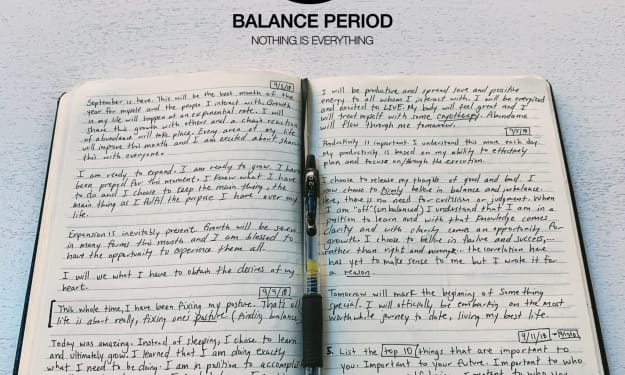 BALANCE PERIOD
NOTHING IS EVERYTHING
9/2/18
September is here. This will be the best month of the
year for myself and the people I interact with. Growth
in my life will happen at an exponential rate. I will
share this growth with others and a chain reaction
of abundance will take place. Every area of my life
will improve this month and I am excited about sharing
this with everyone.
I am ready to expand. I am ready to grow. I have
been preped for this moment. I know what I have
to do and I choose to keep the main thing, the
main thing as I fulfil the purpose I have over my
life.
Expansion is inevitably present. Growth will be seen
in many forms this month and I am blessed to
have the opportunity to experience them all.
I will use what I have to obtain the desires of my
heart.
9/9/18
This whole time, I have been fixing my posture. That's all
life is about really, fixing ones posture (finding balance
Today was amazing. Instead of sleeping, I chose to learn
and ultimately grow. I learned that I am doing exactly
what I need to be doing. I am in position to accomplish
I will be produtive and spread love and positive
energy to all whom I interact with. I will be energized
and excited to LIVE. My body will feel great and I
will treat myself with some cryotherapy. Abundance
will flow through me tomorrow.
Productivity is important. I understand this more each day.
My productivity is based on my ability to effectively
plan and focus on/through the execution.
I choose to release my thoughts of good and bad. I
now choose to believe in balance and imbalance.
there is no need for criticism or judgment. When
I am "off" (unbalanced) I understand that I am in a
position to learn and with that knowledge comes
clarity and with clarity comes an opportunity for
growth. I choose to believe in failure and success,...
rather than right and wrong... the correlation here
has yet to make sense to me but I wrote it for
a reason.
Tomorrow will mark the beginning of something
special. I will officially be embarking on the most
worthwhile journey to date, living my best life.
9/11/18
5. List the top 10 things that are important to
you. Important to your future. Important to who